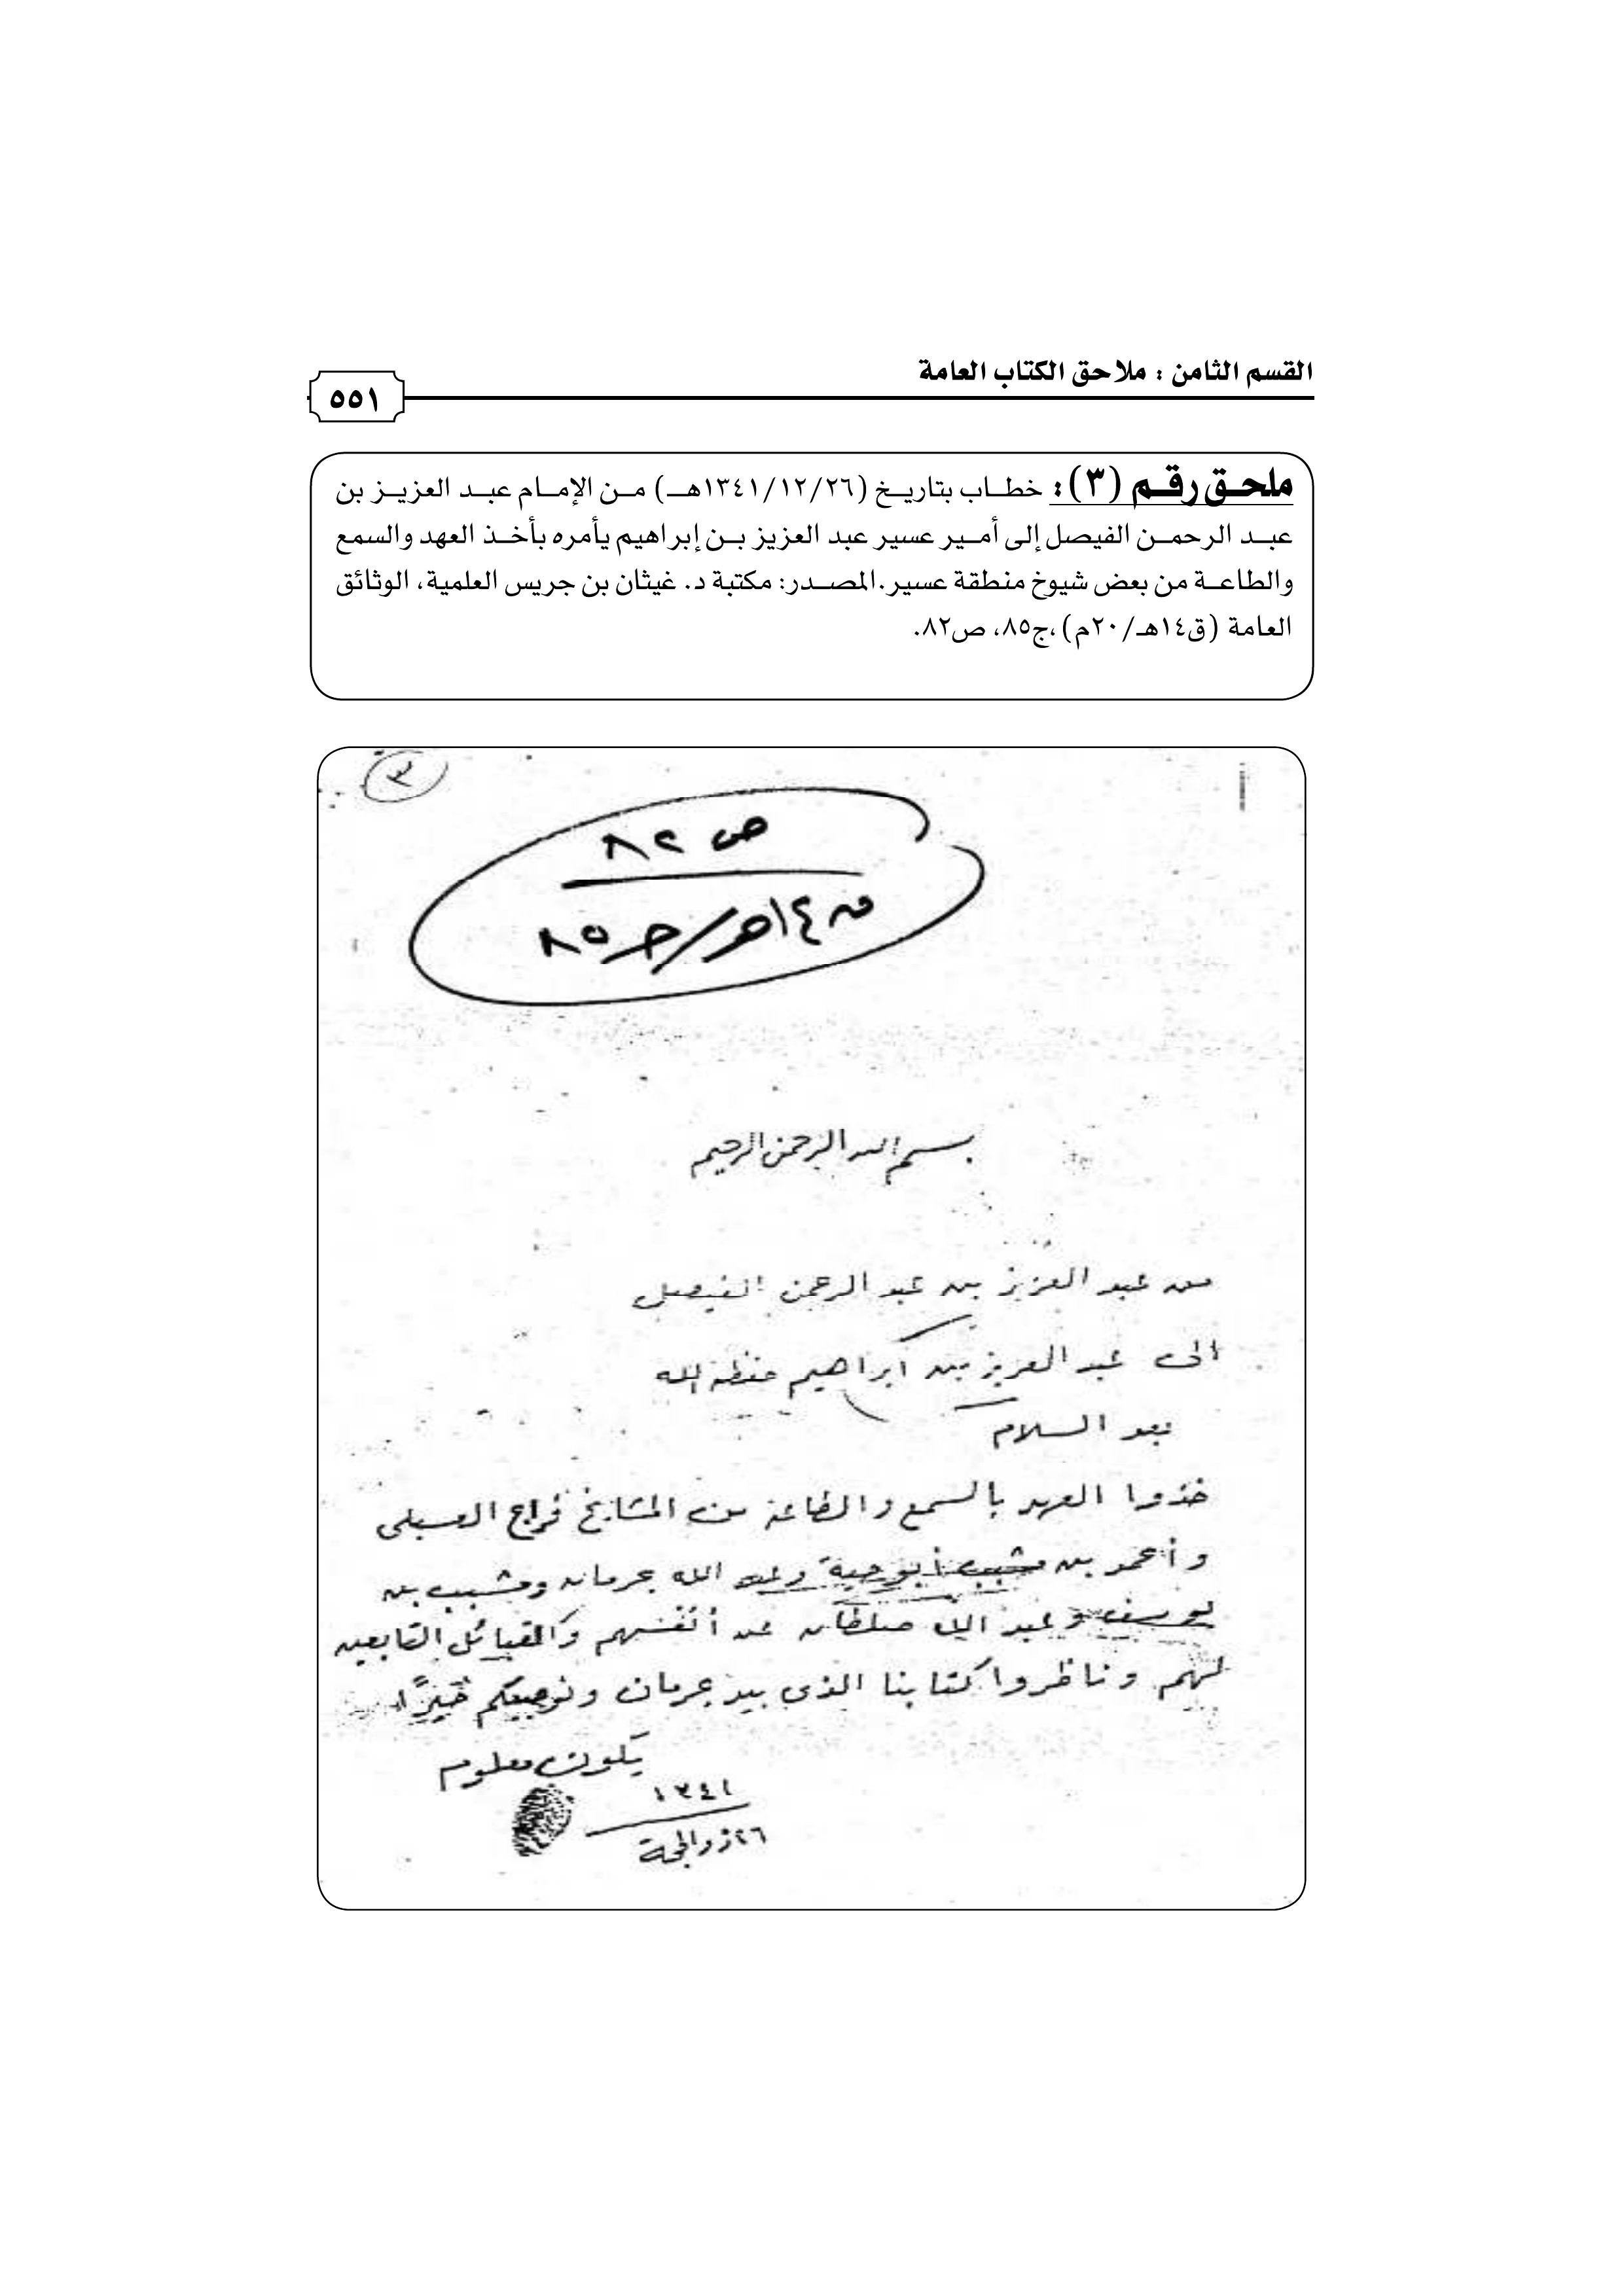 القسم الثامن : ملاحق الكتاب العامة
٥٥١
ملحق رقم (٣): خطاب بتاريخ (١٣٤١/١٢/٢٦هـ) من الإمام عبد العزيز بن
عبد الرحمن الفيصل إلى أمير عسير عبد العزيز بن إبراهيم يأمره بأخذ العهد والسمع
والطاعة من بعض شيوخ منطقة عسير. المصدر: مكتبة د. غيثان بن جريس العلمية، الوثائق
العامة (ق١٤هـ/٢٠م)، ج٨٥، ص٨٢.
٣
ص ٨٢
ق١٤هـ/جـ٨٥
بسم الله الرحمن الرحيم
من عبد العزيز بن عبد الرحمن الفيصل
الى عبد العزيز بن ابراهيم حفظه الله
بعد السلام
خذوا العهد بالسمع والطاعة من المشايخ فراج العسبلي
و بن مشبب أبو حية الله جرمان ومشبب بن
يوسف وعبد الله صلطان عن أنفسهم والقبائل التابعين
لهم وناظروا كتابنا الذي بيد جرمان ونوصيكم خيرًا
يكون معلوم
١٣٤١
٢٦ ذو الحجة